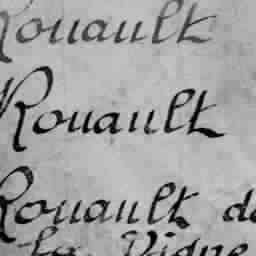 Rouault
Rouault
Rouault de
la Vigne